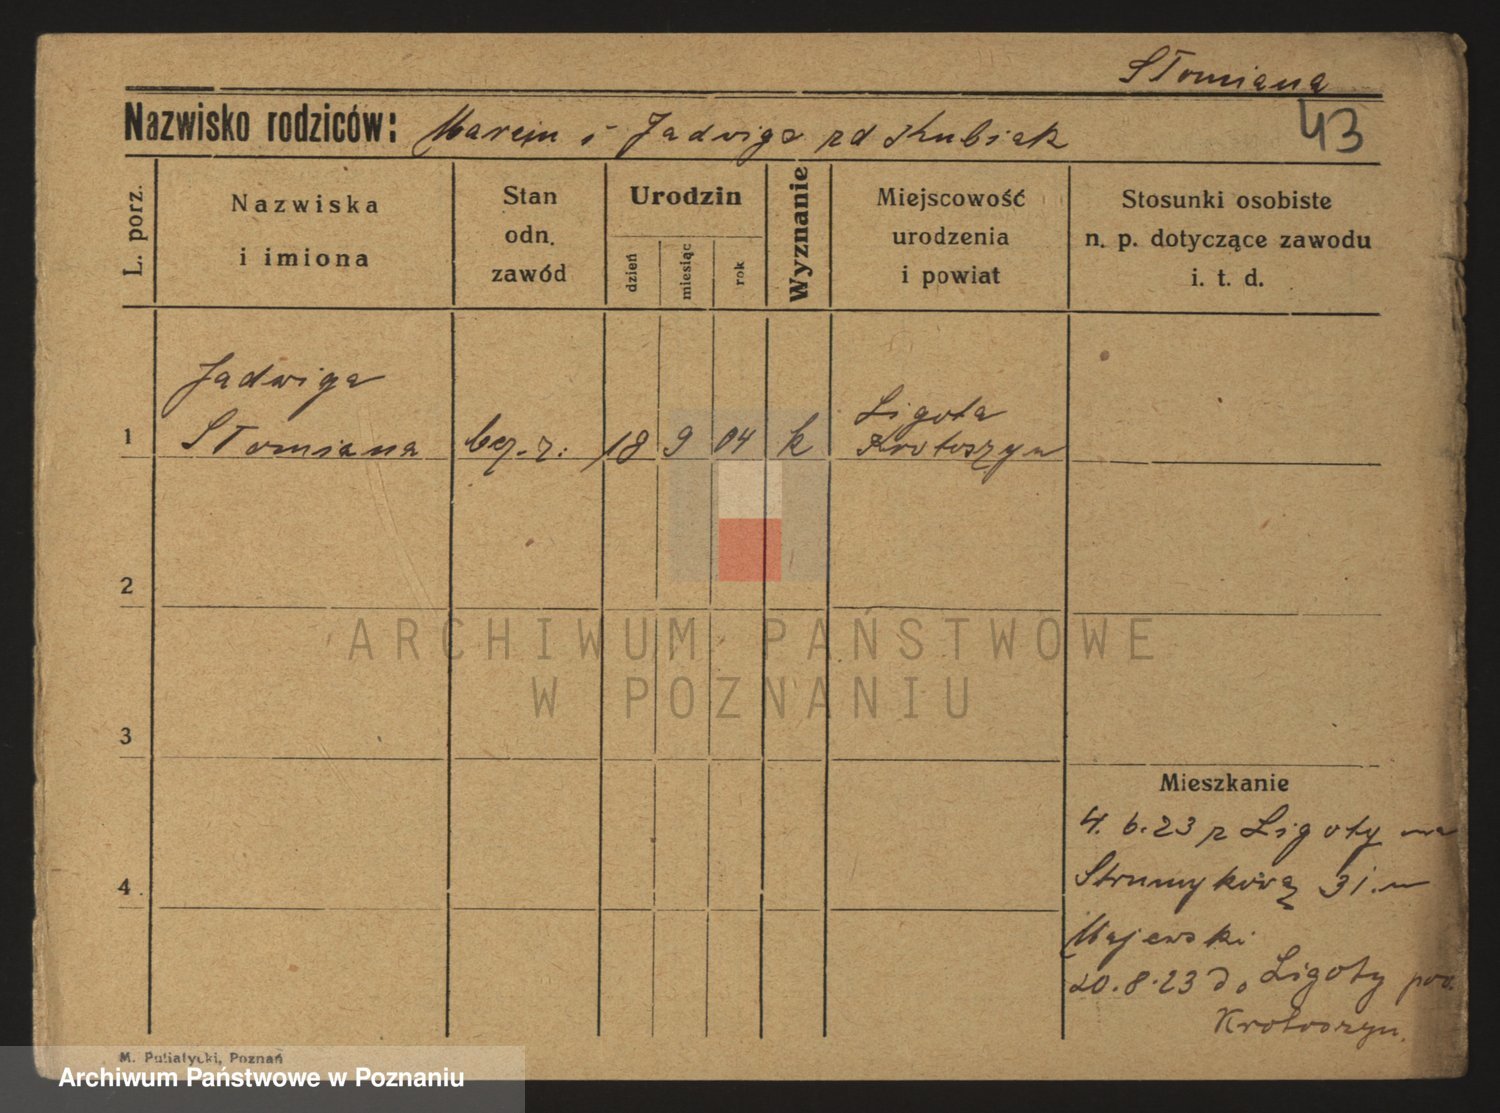 Słomiana
43
Nazwisko rodziców: Marcin i Jadwiga zd Kubiak
L. porz.
Nazwiska
i imiona
Stan
odn.
zawód
Urodzin
dzień
miesiąc
rok
Wyznanie
Miejscowość
urodzenia
i powiat
Stosunki osobiste
n. p. dotyczące zawodu
i. t. d.
Jadwiga
1 Słomiana bez. z. 18 9 04 k Ligota
Krotoszyn
2
3
4
Mieszkanie
4. 6. 23 z Ligoty na
Strumykową 31. u
Majewski
20. 8. 23 do Ligoty pow.
Krotoszyn.
M. Putiatycki, Poznań
ARCHIWUM PAŃSTWOWE
W POZNANIU
Archiwum Państwowe w Poznaniu